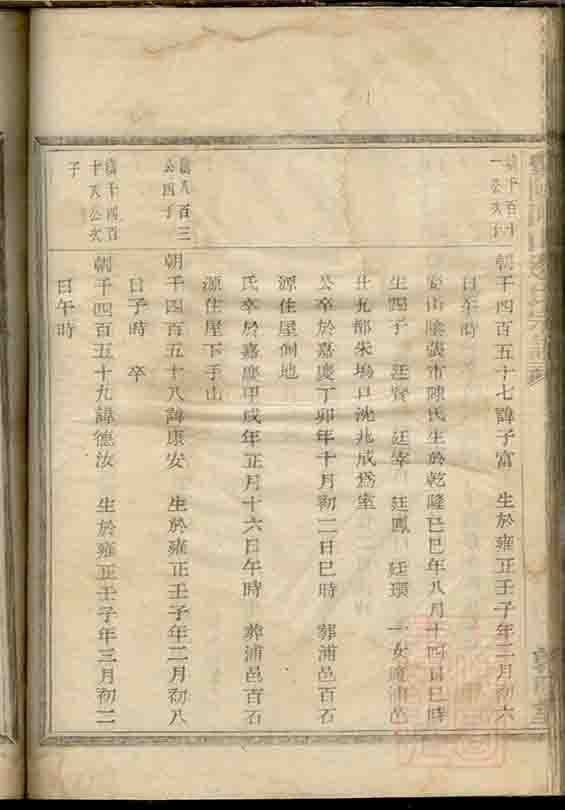 朝千四百五十七諱子富　生於雍正壬子年二月初六
日午時
山陰張市陳氏生於乾隆己巳年八月十四日巳時
生四子　廷賢　廷宰　廷鳳　廷環　一女適浦邑
廿九都朱塢口沈兆成爲室
公卒於嘉慶丁卯年十月初二日巳時　葬浦邑百石
源住屋側地
氏卒於嘉慶甲戌年正月十六日午時　葬浦邑百石
源住屋下手山
八百三
公四子
朝千四百五十八諱康安　生於雍正壬子年二月初八
日子時　卒
千四百
十八公次
子
朝千四百五十九諱德汝　生於雍正壬子年三月初二
日午時